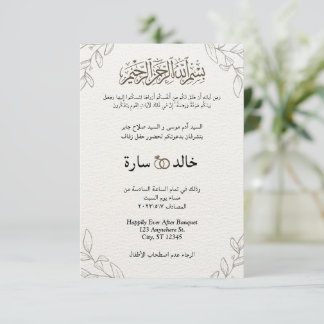 بسم الله الرحمن الرحيم
ومن آياته أن خلق لكم من أنفسكم أزواجا لتسكنوا إليها وجعل
بينكم مودة ورحمة إن في ذلك لآيات لقوم يتفكرون
السيد آدم موسى و السيد صلاح جابر
يتشرفان بدعوتكم لحضور حفل زفاف
خالد سارة
وذلك في تمام الساعة السادسة من
مساء يوم السبت
المصادف ٢٠٢٣/٥/١٧
Happily Ever After Banquet
123 Anywhere St.
City, ST 12345
الرجاء عدم اصطحاب الأطفال